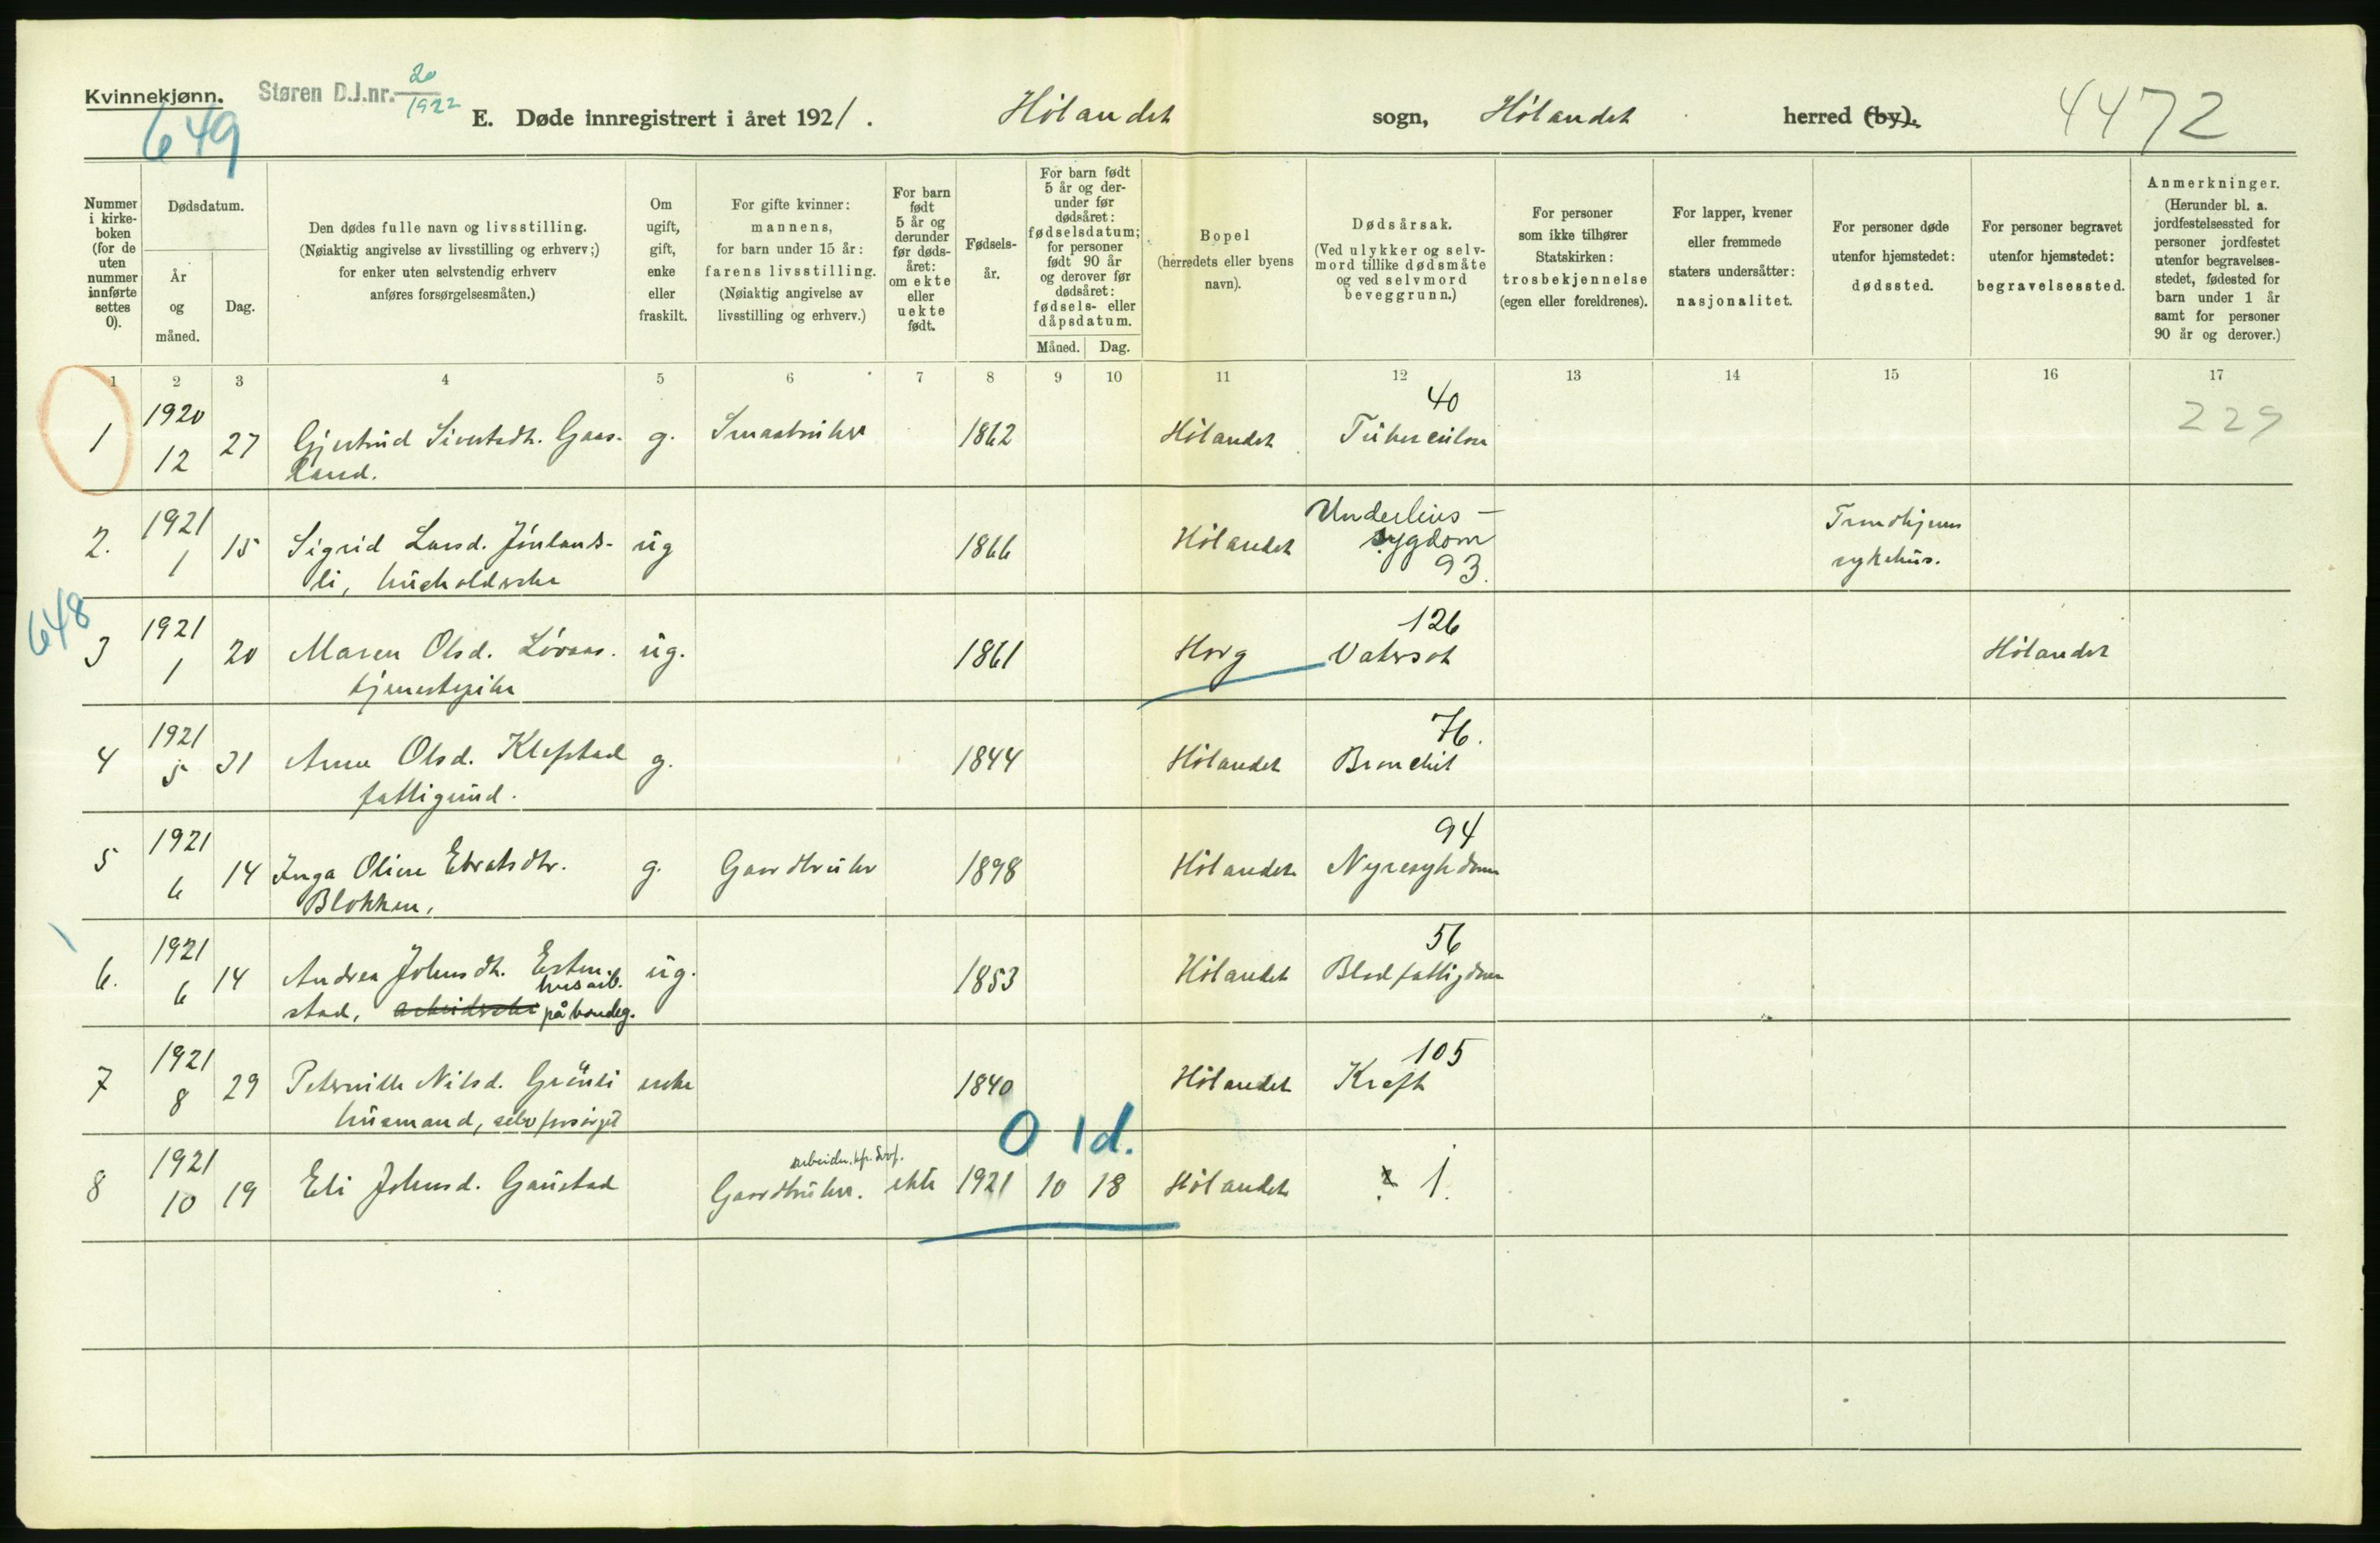 Kvinnekjønn.
Støren D.J.nr. 20/1922
649
E. Døde innregistrert i året 1921.
Hølandet sogn, Hølandet herred (by).
4472
Nummer i kirke-boken (for de uten nummer innførte settes 0).
Dødsdatum.
År og måned.
Dag.
Den dødes fulle navn og livsstilling.
(Nøiaktig angivelse av livsstilling og erhverv;)
for enker uten selvstendig erhverv
anføres forsørgelsesmåten.)
Om ugift, gift, enke eller fraskilt.
For gifte kvinner: mannens, for barn under 15 år: farens livsstilling.
(Nøiaktig angivelse av livsstilling og erhverv.)
For barn født 5 år og derunder før døds-året: om ekte eller uekte født.
Fødsels-år.
For barn født 5 år og der-under før dødsåret: fødselsdatum; for personer født 90 år og derover før dødsåret: fødsels- eller dåpsdatum.
Måned. Dag.
Bopel (herredets eller byens navn).
Dødsårsak.
(Ved ulykker og selv-mord tillike dødsmåte og ved selvmord beveggrunn.)
For personer som ikke tilhører Statskirken: trosbekjennelse (egen eller foreldrenes).
For lapper, kvener eller fremmede staters undersåtter: nasjonalitet.
For personer døde utenfor hjemstedet: dødssted.
For personer begravet utenfor hjemstedet: begravelsessted.
Anmerkninger.
(Herunder bl. a. jordfestelsessted for personer jordfestet utenfor begravelses-stedet, fødested for barn under 1 år samt for personer 90 år og derover.)
1 2 3 4 5 6 7 8 9 10 11 12 13 14 15 16 17
1 1920 12 27 Gjertrud Sivertsdtr. Gaas- g. Smaabruker 1862 Hølandet 40 Tuberculose 229
land.
2. 1921 1 15 Sigrid Larsd. ug 1866 Hølandet Underlivs- Trondhjems
li, husholderske sygdom 93. sykehus.
648
3 1921 1 20 Maren Olsd. Løvaas. ug. 1861 Horg 126 Vatersot Hølandet
tjenestepike
4 1921 5 31 Anne Olsd. Klefstad g. 1844 Hølandet 76. Bronchit
fattigund.
5 1921 6 14 Inga Oline g. Gaardbruker 1898 Hølandet 94 Nyresykdom
Blokken,
6. 1921 6 14 Andrea Johnsdtr. Esten- ug. 1853 Hølandet 56 Blodfattigdom
husarb.
stad, arbeiderske på bondeg.
7 1921 8 29 Peternille Nilsd. Grønli enke 1840 Hølandet 105 Kræft
husmand, selvforsørget
0 1 d.
8 1921 10 19 Eli Johnsd. Gaustad Gaardbruker. ekte 1921 10 18 Hølandet ? 1.